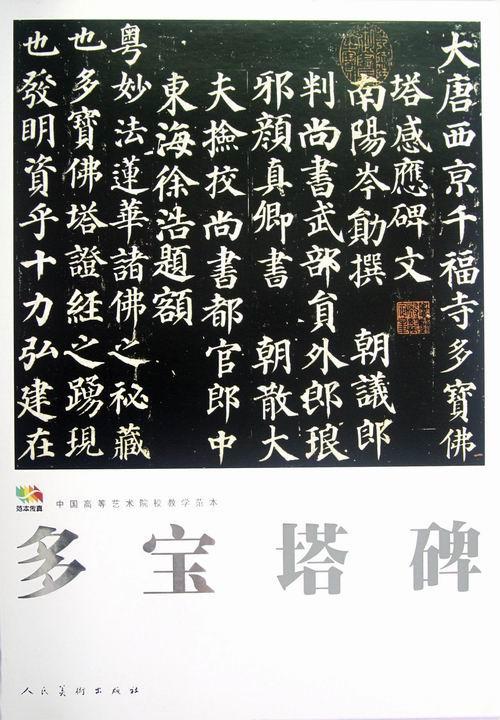 大唐西京千福寺多寶佛
塔感應碑文
南陽岑勛撰 朝議郎
判尚書武部貟外郎琅
邪顏真卿書 朝散大
夫撿挍尚書都官郎中
東海徐浩題額
粵妙法蓮華諸佛之祕藏
也多寶佛塔證經之踴現
也發明資乎十力弘建在
范本传真
中国高等艺术院校教学范本
多宝塔碑
人民美术出版社